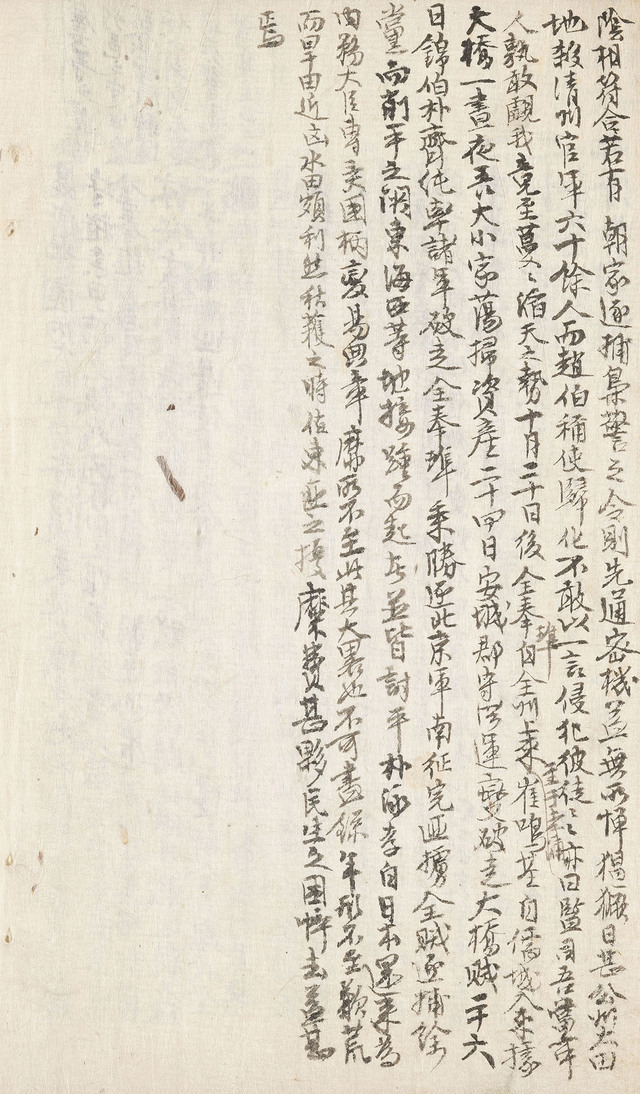 陰相符合若有 朝家逐捕梟警之令則先通密機益無所憚猖獗日甚公州大田
地殺清州官軍六十餘人而趙伯稱使歸化不敢以一言侵犯彼徒々亦曰監司吾黨中
人孰敢覷我竟至蔓々滔天之勢十月二十日後全奉準自全州上來至于孝浦崔鳴基自儒城入來據
大橋一晝夜吾大小家蕩掃資產二十四日安城郡守洪運燮破走大橋賊二十六
日錦伯朴齊純率諸軍破走全奉準乘勝逐北京軍南征完西擄全賊逐捕餘
黨而削平之湖東海西等地接踵而起者並皆討平 朴泳孝自日本還來爲
內務大臣專美國柄變易典章靡所不至此其大畧也不可盡錄年形不至歉荒
而旱田近凶水田頗利然秋穫之時値東匪之擾糜費甚夥民生之困悴去益甚
焉